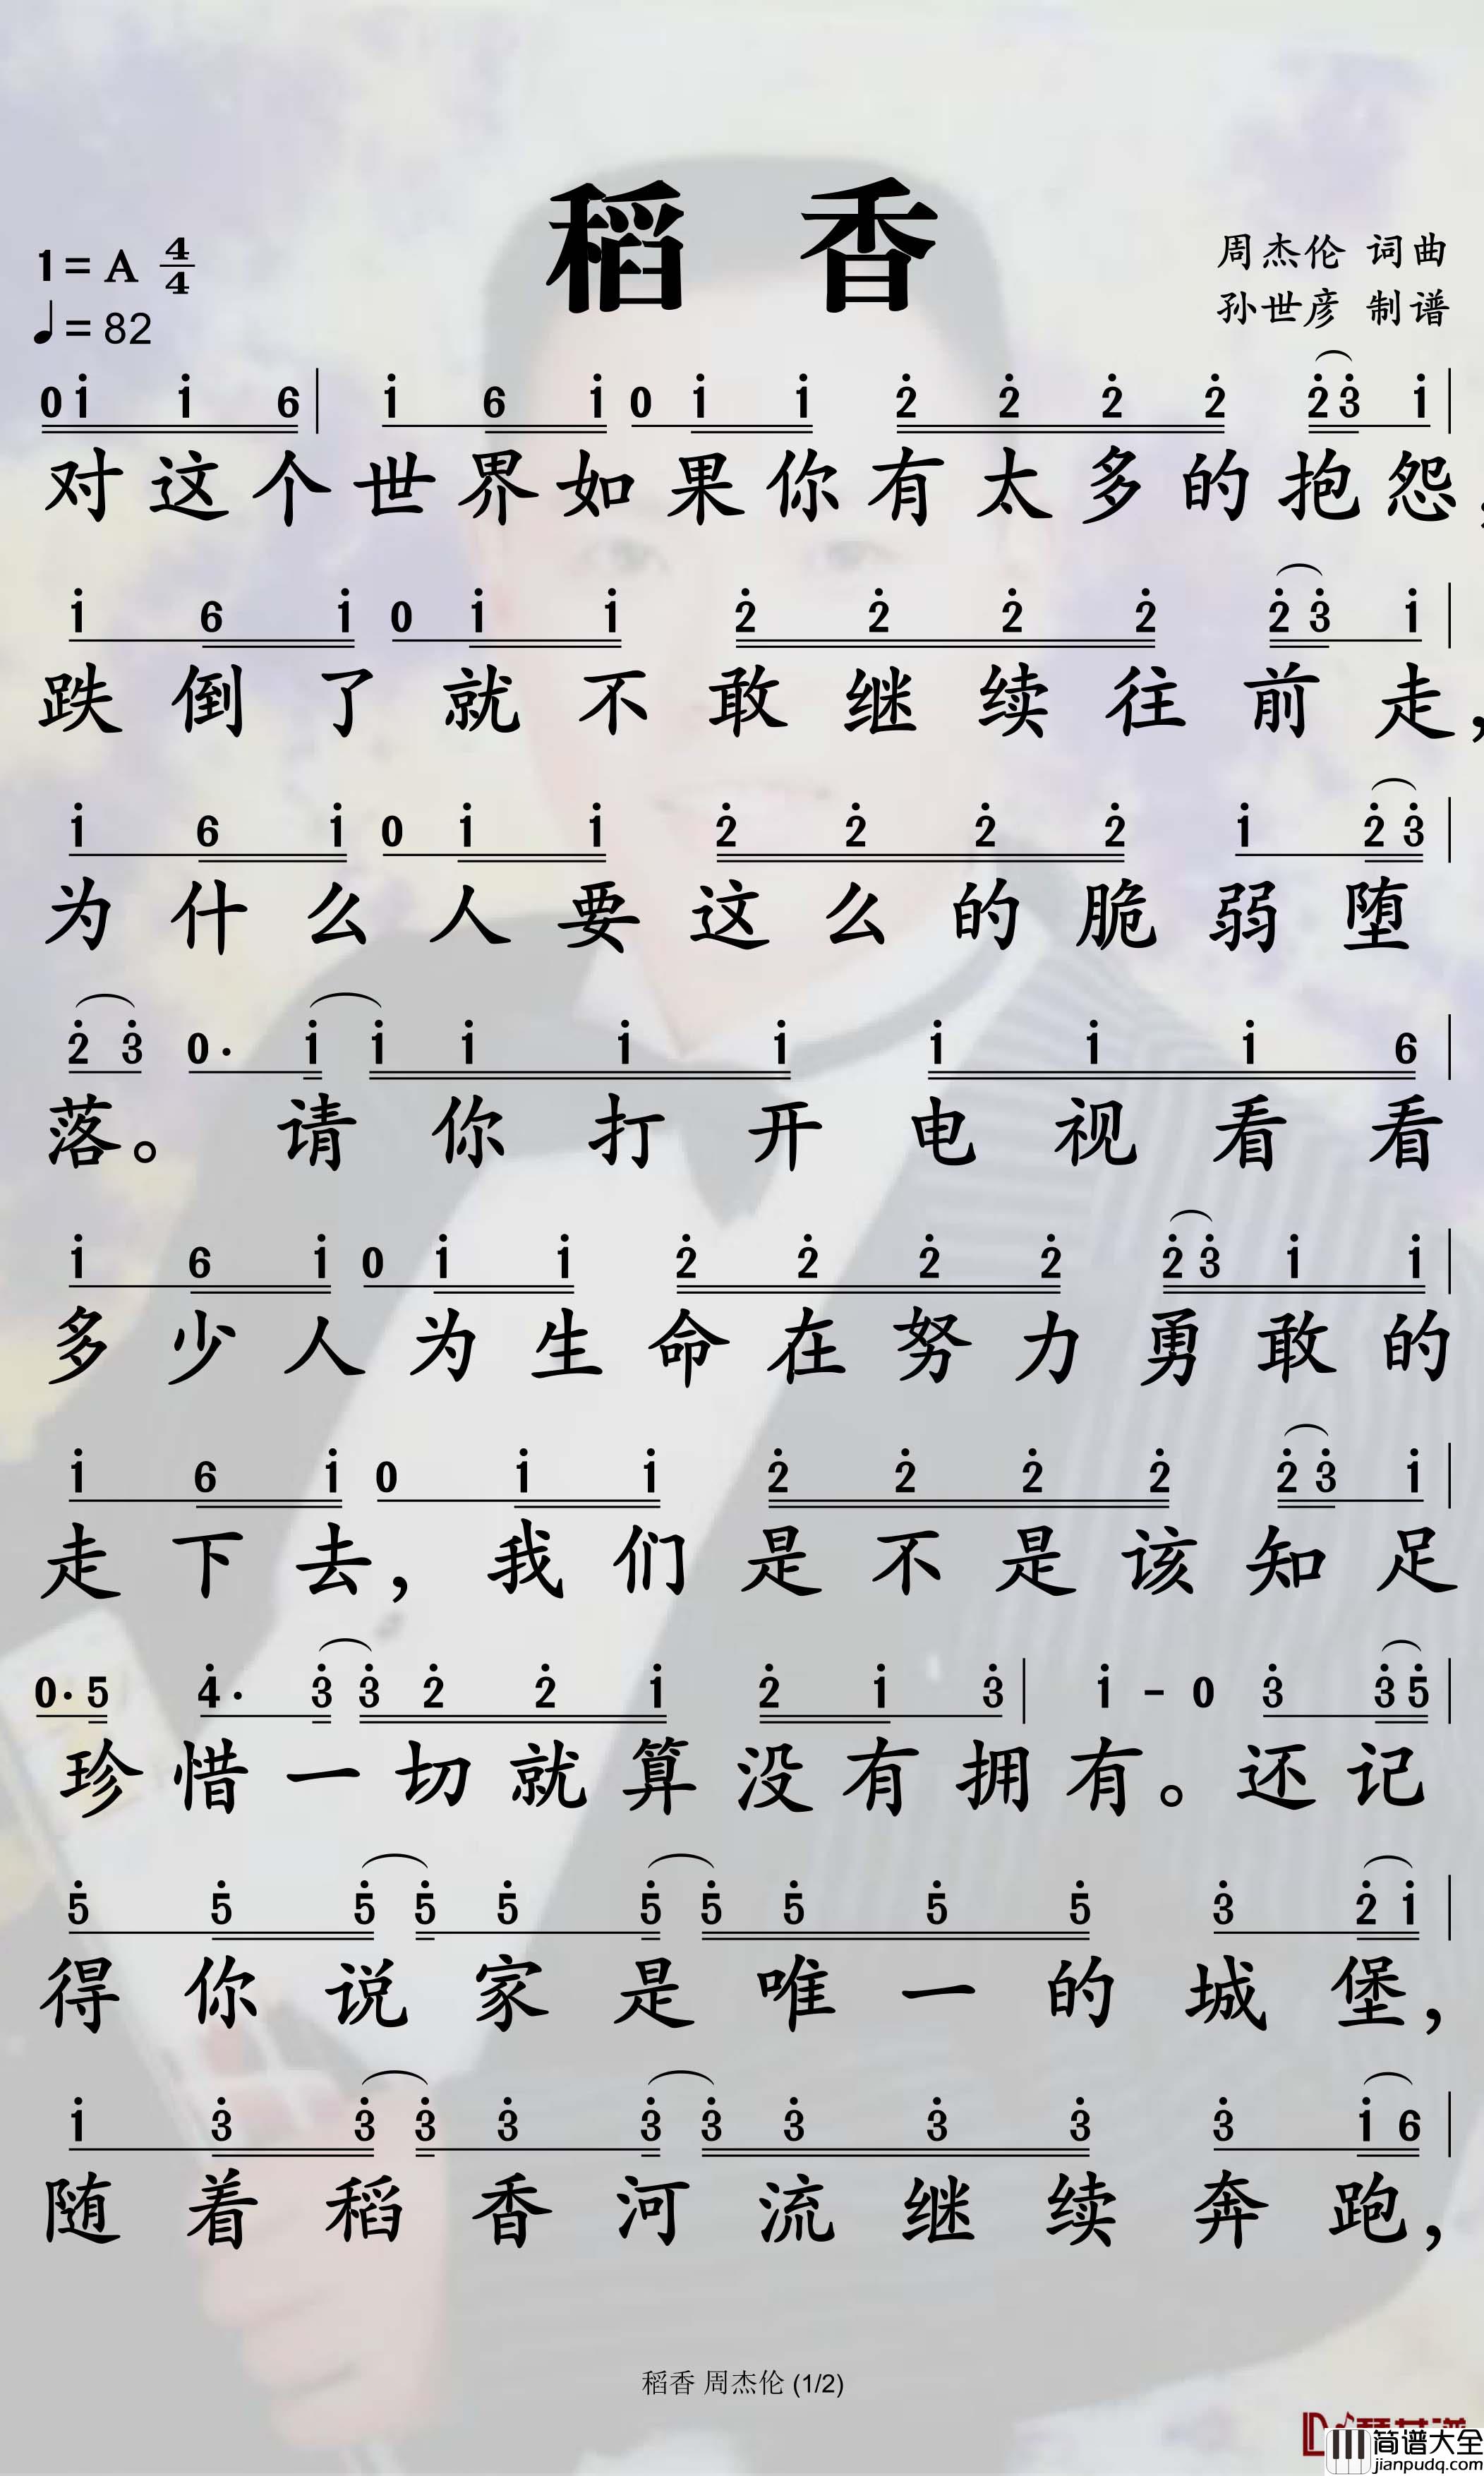 稻 香
1=A 4/4
♩=82
周杰伦 词曲
孙世彦 制谱
0i̇ i̇ 6 | i̇ 6 i̇ 0 i̇ i̇ 2̇ 2̇ 2̇ 2̇ 2̇3̇ i̇ |
对这个世界如果你有太多的抱怨，
i̇ 6 i̇ 0 i̇ i̇ 2̇ 2̇ 2̇ 2̇ 2̇ 3̇ i̇ |
跌倒了就不敢继续往前走，
i̇ 6 i̇ 0 i̇ i̇ 2̇ 2̇ 2̇ 2̇ i̇ 2̇ 3̇ |
为什么人要这么的脆弱堕
2̇ 3̇ 0· i̇ i̇ i̇ i̇ i̇ i̇ i̇ i̇ 6 |
落。请你打开电视看看
i̇ 6 i̇ 0 i̇ i̇ 2̇ 2̇ 2̇ 2̇ 2̇3̇ i̇ i̇ |
多少人为生命在努力勇敢的
i̇ 6 i̇ 0 i̇ i̇ 2̇ 2̇ 2̇ 2̇ 2̇ 3̇ i̇ |
走下去，我们是不是该知足
0·5 4̇· 3̇ 3̇ 2̇ 2̇ i̇ 2̇ i̇ 3̇ | i̇ - 0 3̇ 3̇5̇ |
珍惜一切就算没有拥有。还记
5̇ 5̇ 5̇ 5̇ 5̇ 5̇ 5̇ 5̇ 5̇ 5̇ 3̇ 2̇ i̇ |
得你说家是唯一的城堡，
i̇ 3̇ 3̇ 3̇ 3̇ 3̇ 3̇ 3̇ 3̇ 3̇ 3̇ i̇ 6 |
随着稻香河流继续奔跑，
稻香 周杰伦 (1/2)
简谱大全
jianpudq.com